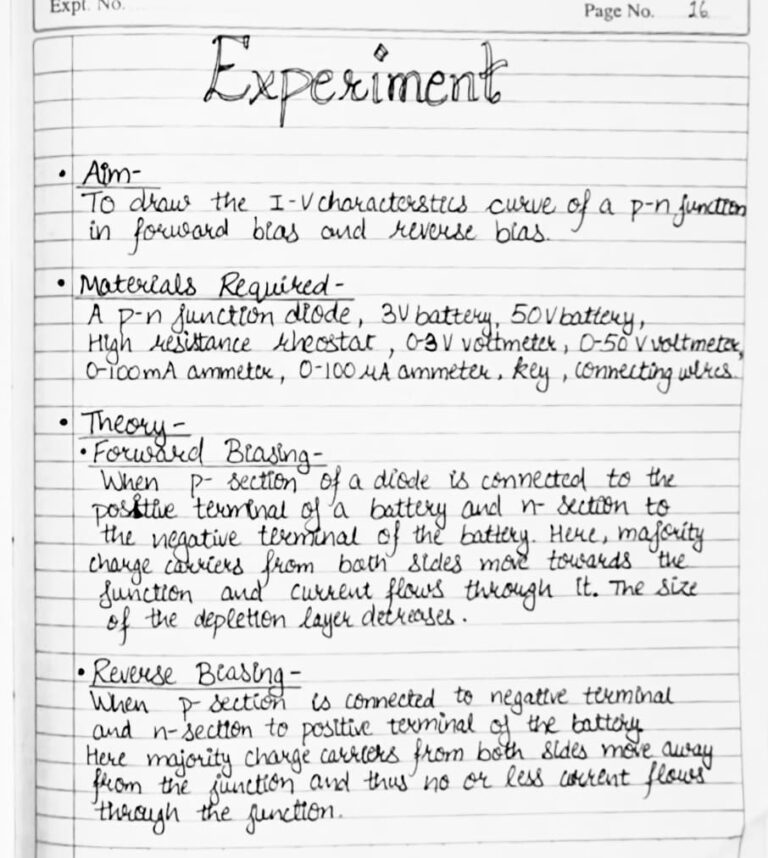 Expt. No.
Page No. 16
Experiment
• Aim-
To draw the I-V characterstics curve of a p-n junction
in forward bias and reverse bias.
• Materials Required-
A p-n junction diode, 3V battery, 50V battery,
High resistance rheostat, 0-3V voltmeter, 0-50V voltmeter,
0-100mA ammeter, 0-100μA ammeter, key, connecting wires.
• Theory-
• Forward Biasing-
When p-section of a diode is connected to the
positive terminal of a battery and n-section to
the negative terminal of the battery. Here, majority
charge carriers from both sides move towards the
junction and current flows through it. The size
of the depletion layer decreases.
• Reverse Biasing-
When p-section is connected to negative terminal
and n-section to positive terminal of the battery
Here majority charge carriers from both sides move away
from the junction and thus no or less current flows
through the junction.